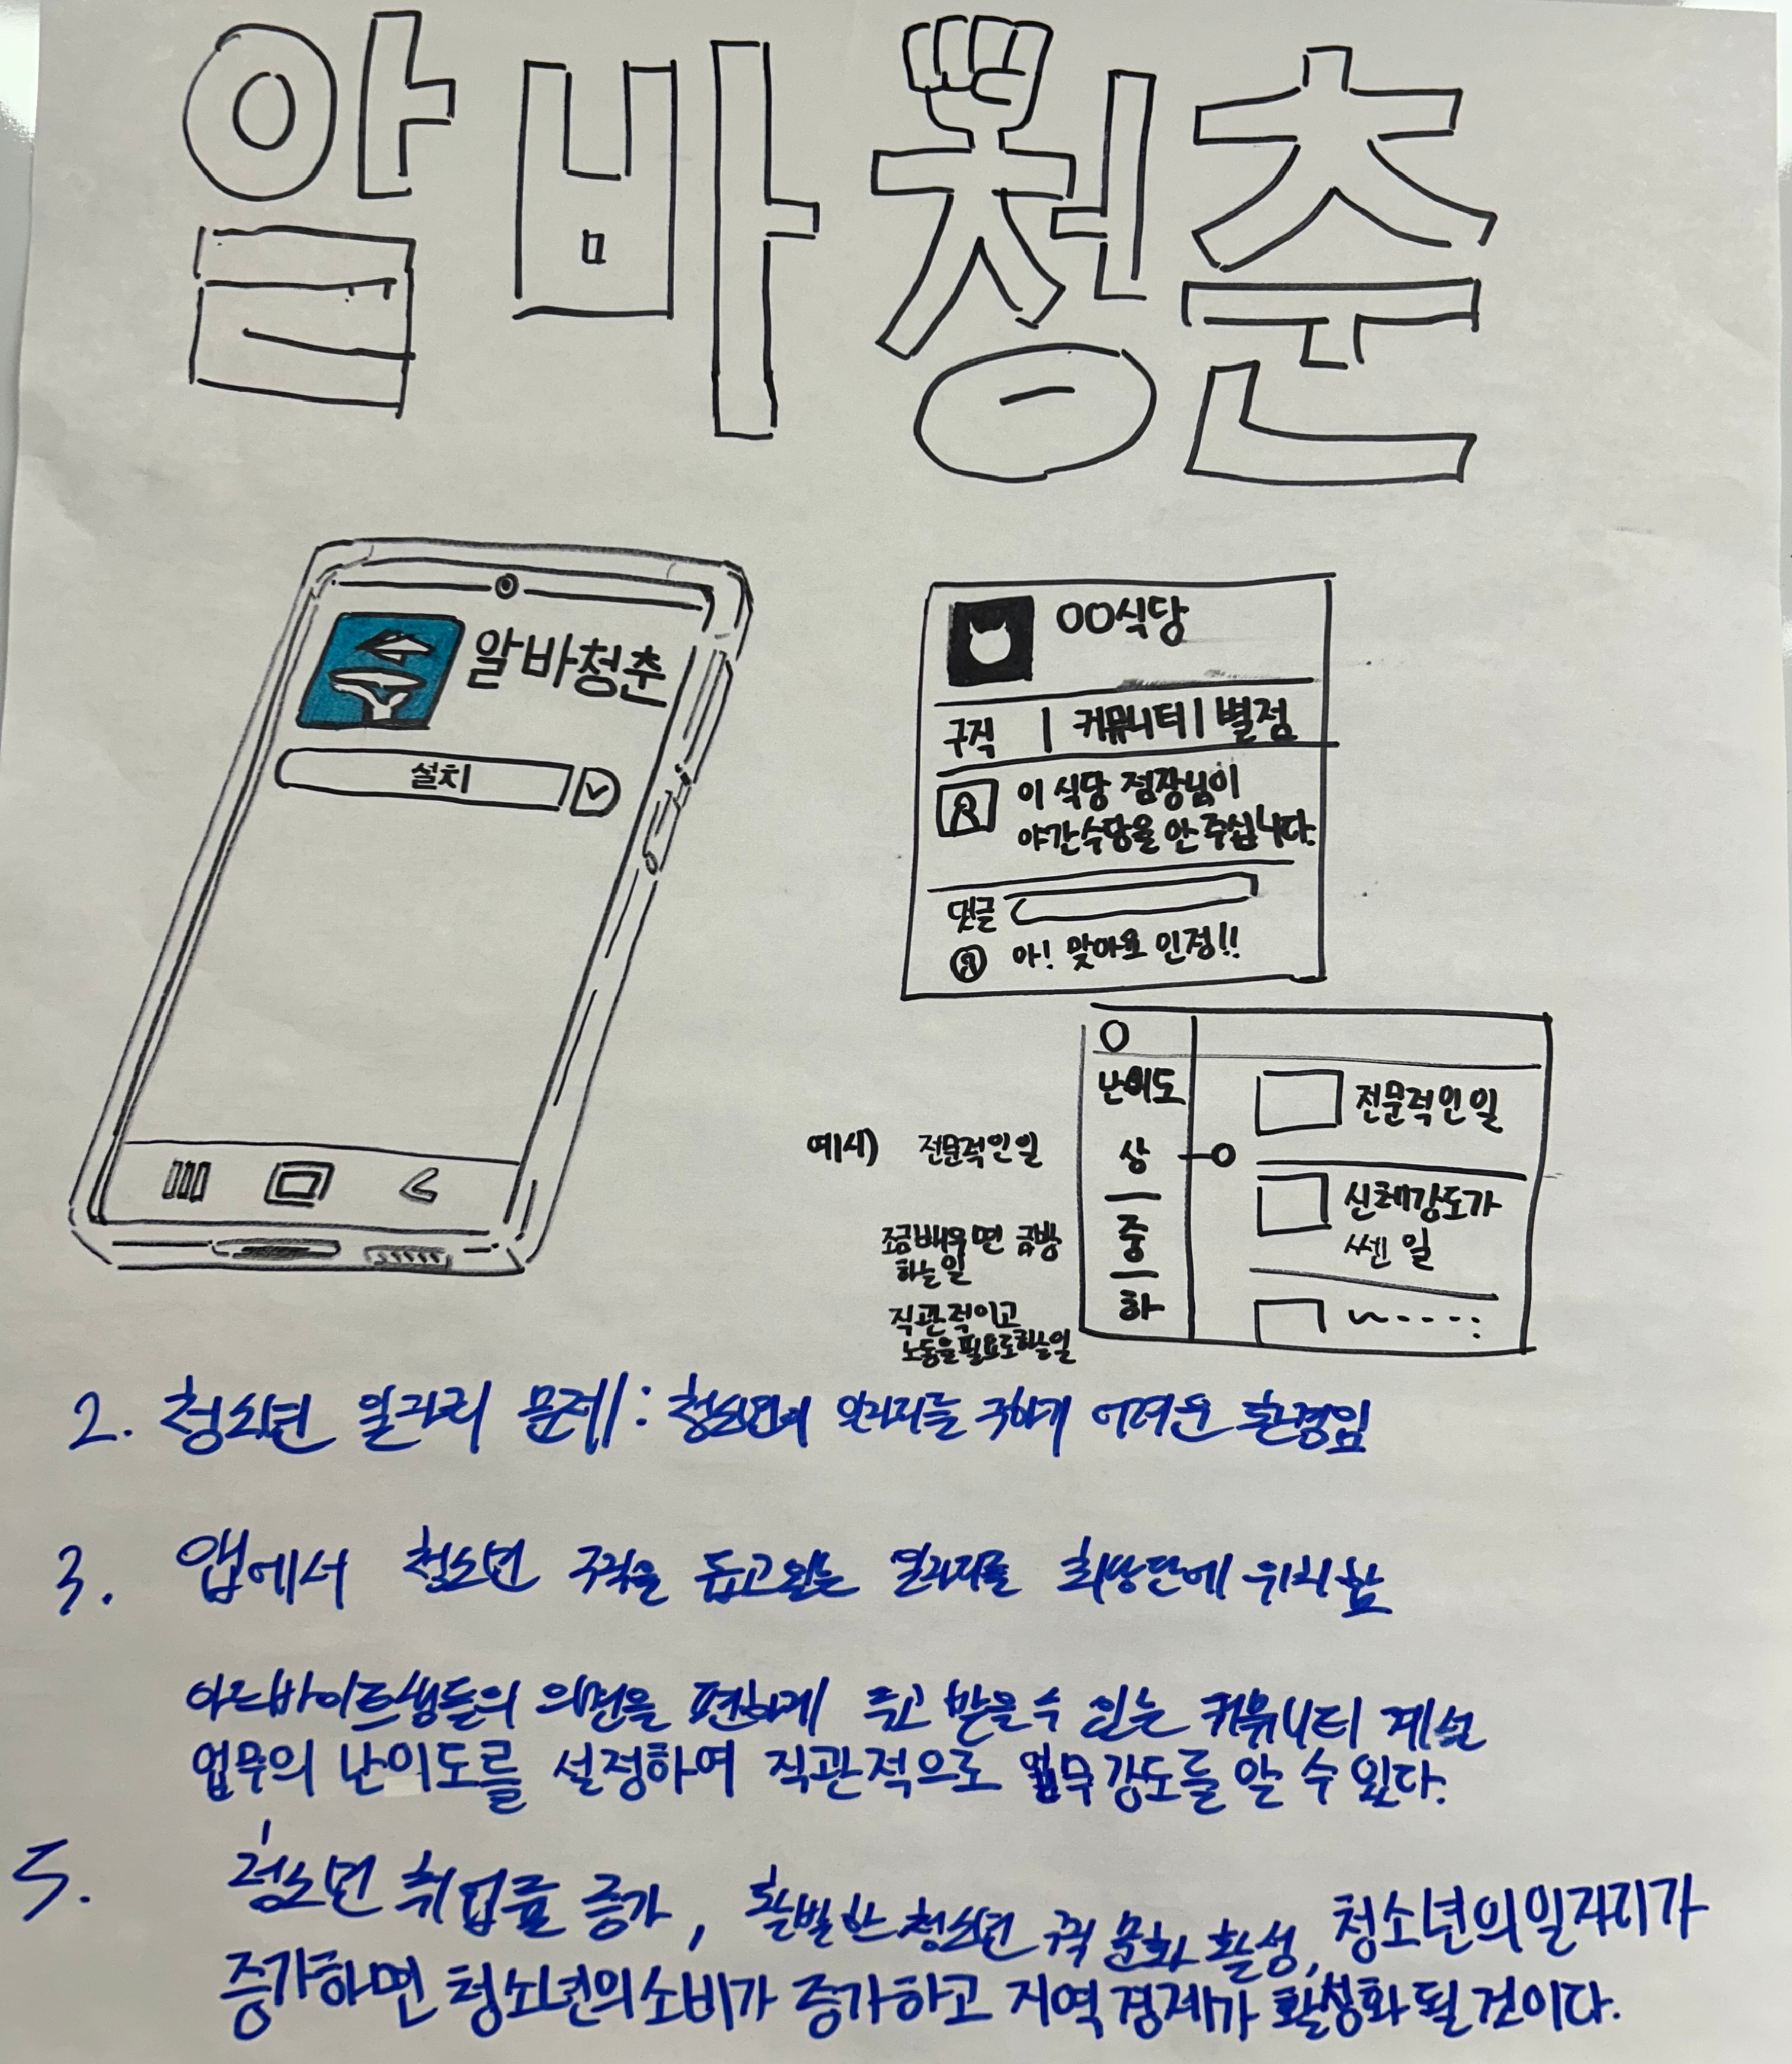 알바청춘
알바청춘
설치
OO식당
구직 | 커뮤니티 | 별점
이 식당 점장님이
야간수당을 안 주십니다.
댓글
아! 맞아요 인정!!
난이도
예시) 전문적인 일
상
전문적인 일
조금배우면 금방
하는일
중
신체강도가
쎈 일
직관적이고
노동을필요로하는일
하
2. 청소년 일자리 문제 : 청소년이 일자리를 구하기 어려운 환경임
3. 앱에서 청소년 구직을 돕고있는 일자리를 최상단에 위치함
아르바이트생들의 의견을 편하게 주고 받을 수 있는 커뮤니티 계설
업무의 난이도를 설정하여 직관적으로 업무강도를 알 수 있다.
5. 청소년 취업률 증가, 활발한 청소년 구직 문화 활성, 청소년의 일자리가
증가하면 청소년의 소비가 증가하고 지역경제가 활성화 될 것이다.